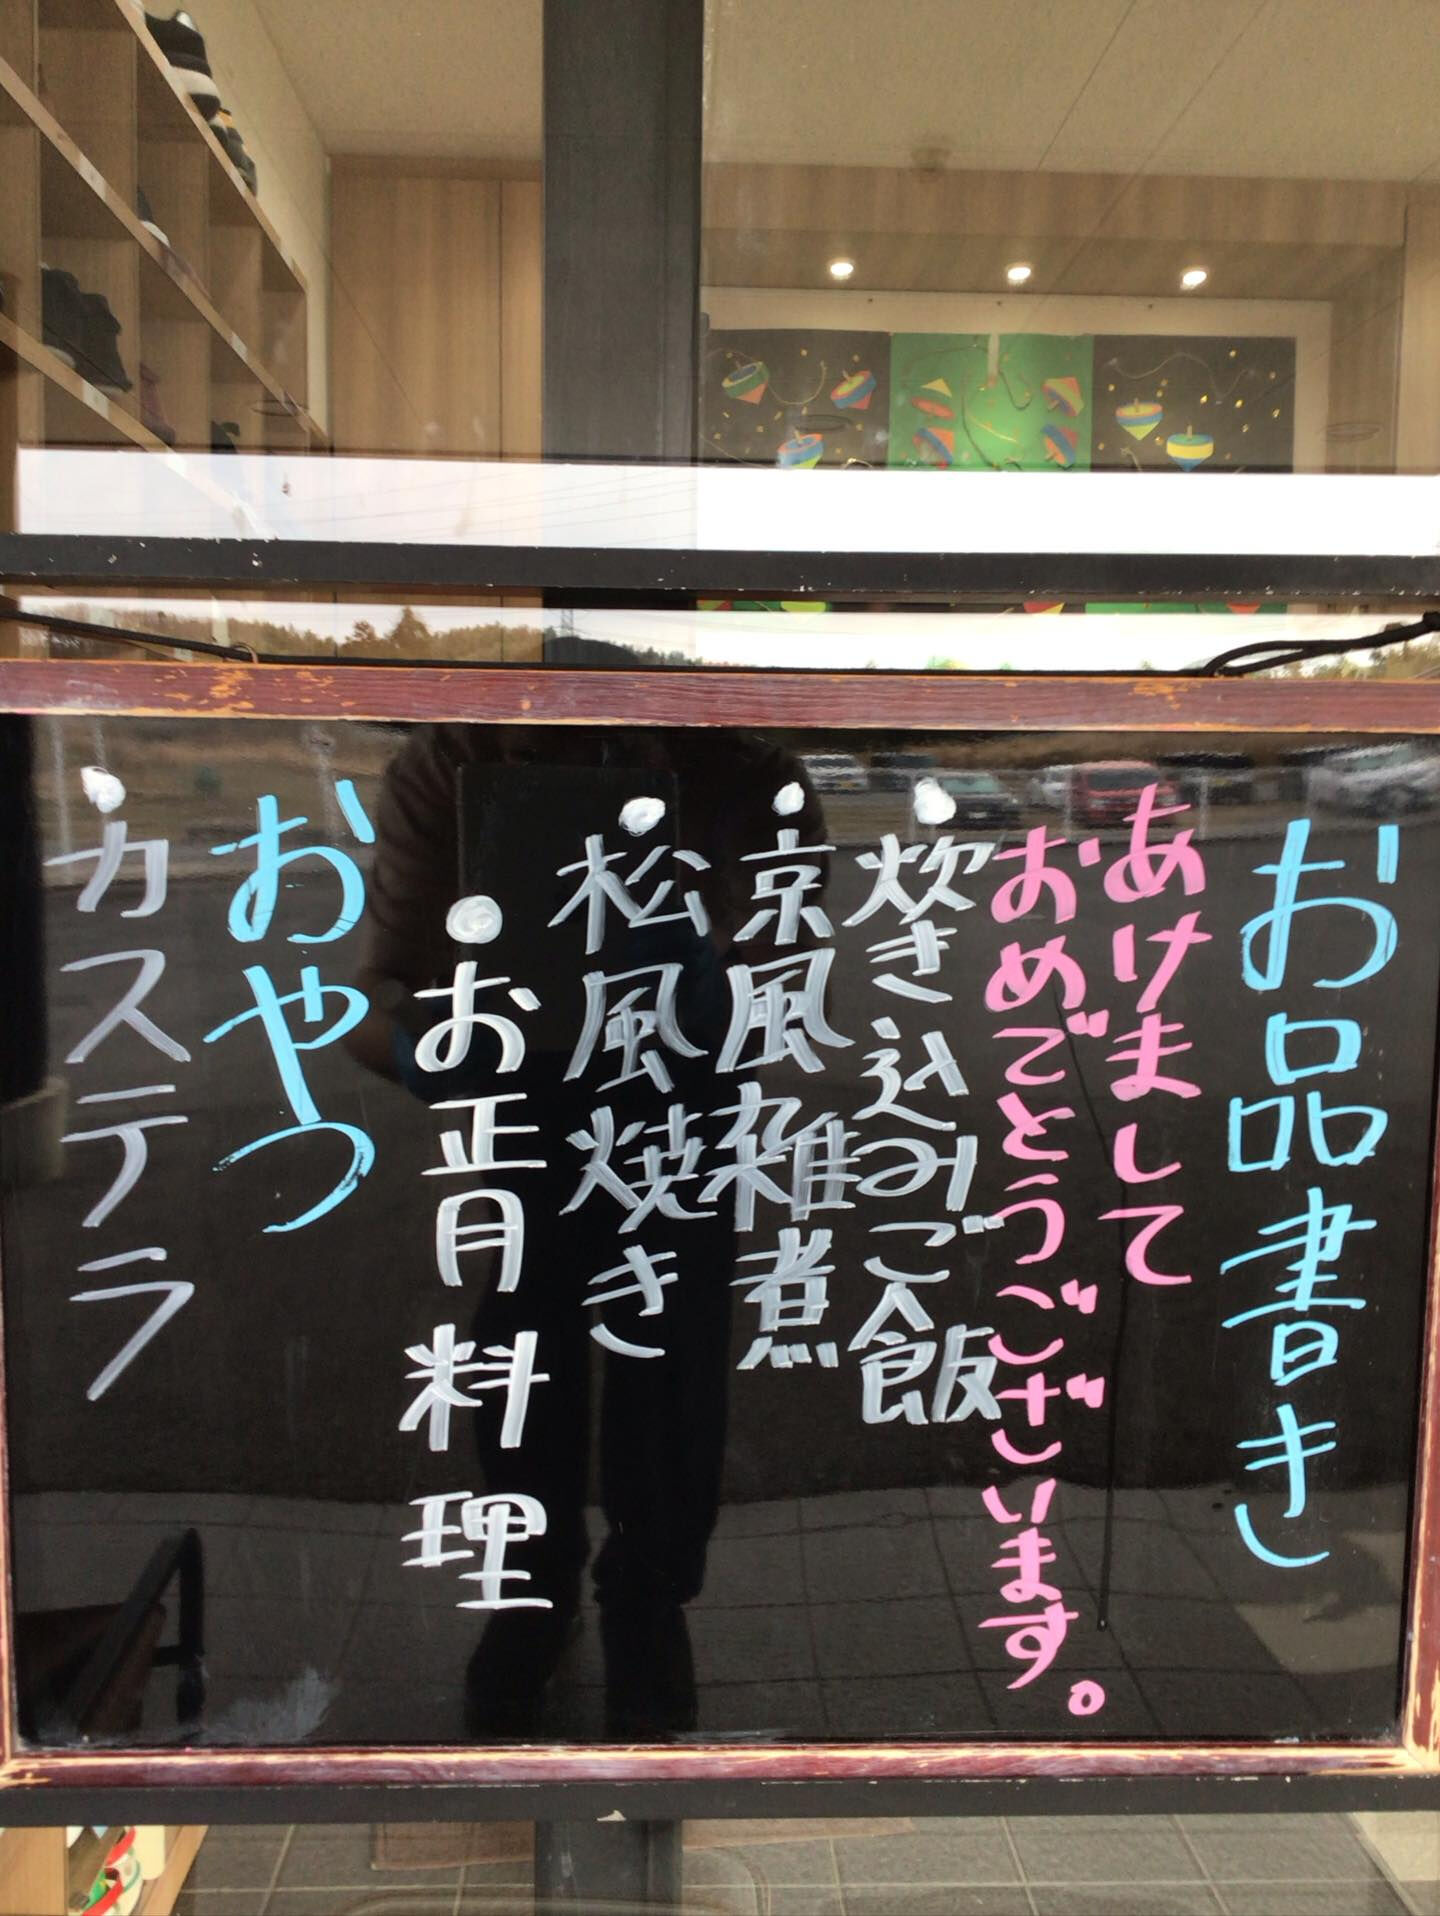 お品書き
あけまして
おめでとうございます。
・炊き込みご飯
・京風雑煮
・松風焼き
・お正月料理
おやつ
・カステラ